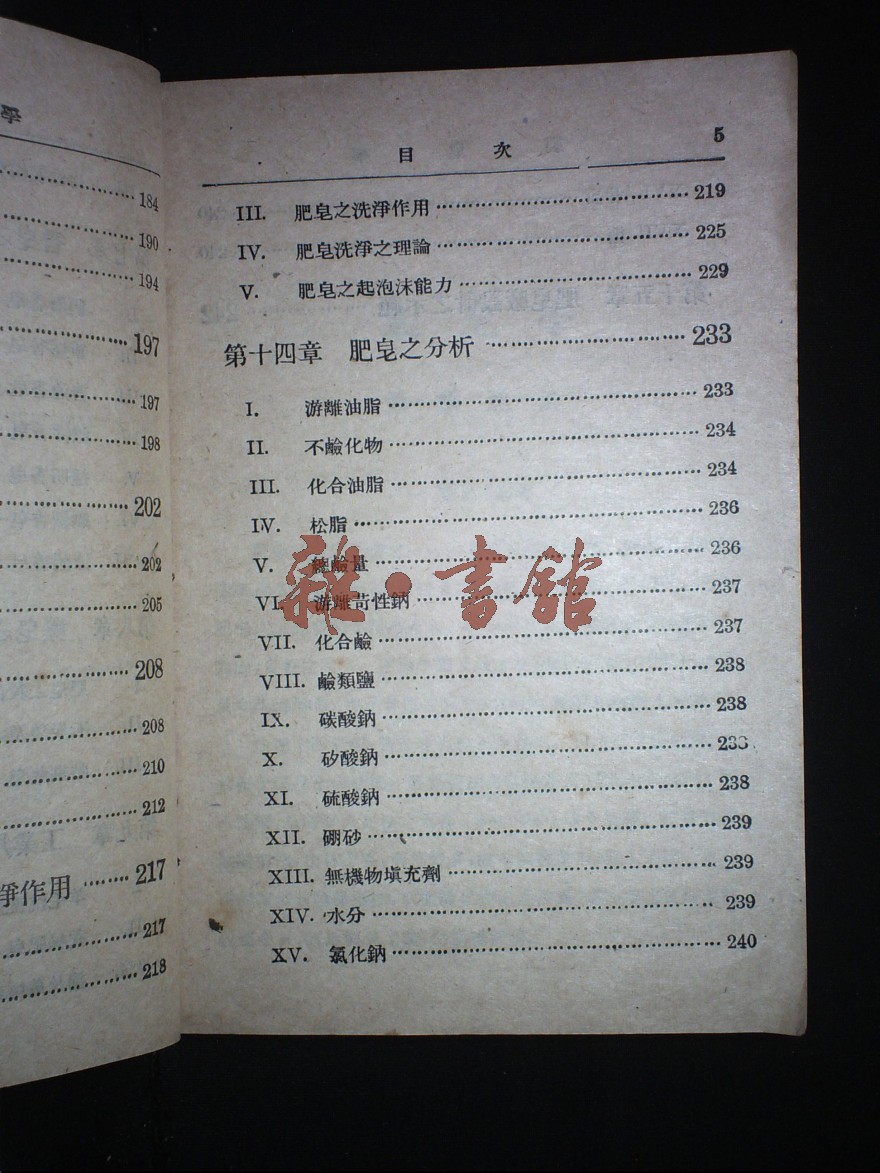 學
184
190
194
197
197
198
202
202
205
208
208
210
212
淨作用 217
217
218
目 次 5
III. 肥皂之洗淨作用 219
IV. 肥皂洗淨之理論 225
V. 肥皂之起泡沫能力 229
第十四章 肥皂之分析 233
I. 游離油脂 233
II. 不鹼化物 234
III. 化合油脂 234
IV. 松脂 236
V. 總鹼量 236
VI. 游離苛性鈉 237
VII. 化合鹼 237
VIII. 鹼類鹽 238
IX. 碳酸鈉 238
X. 矽酸鈉 238
XI. 硫酸鈉 238
XII. 硼砂 239
XIII. 無機物填充劑 239
XIV. 水分 239
XV. 氯化鈉 240
雜·書館